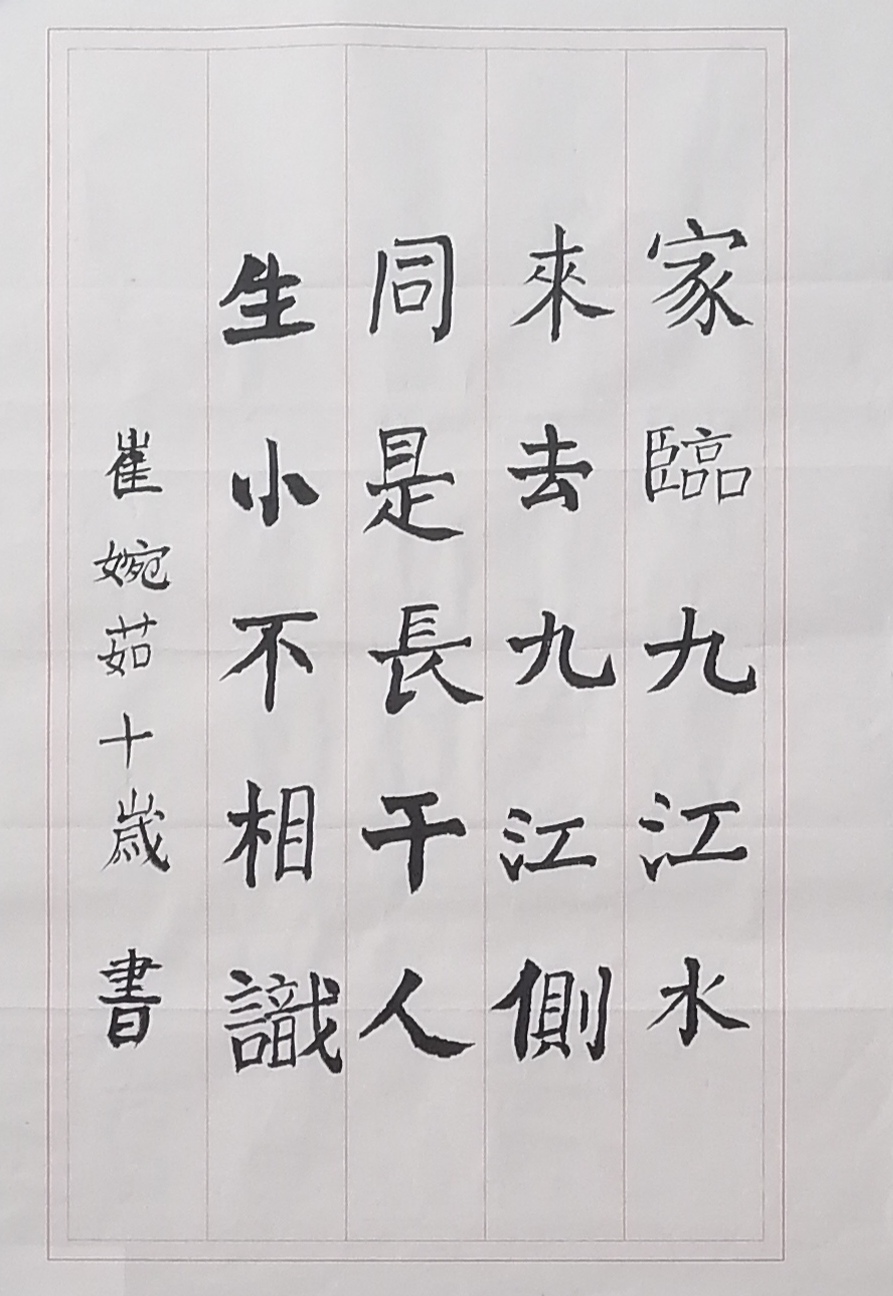 家臨九江水
來去九江側
同是長干人
生小不相識
崔婉茹十歲書